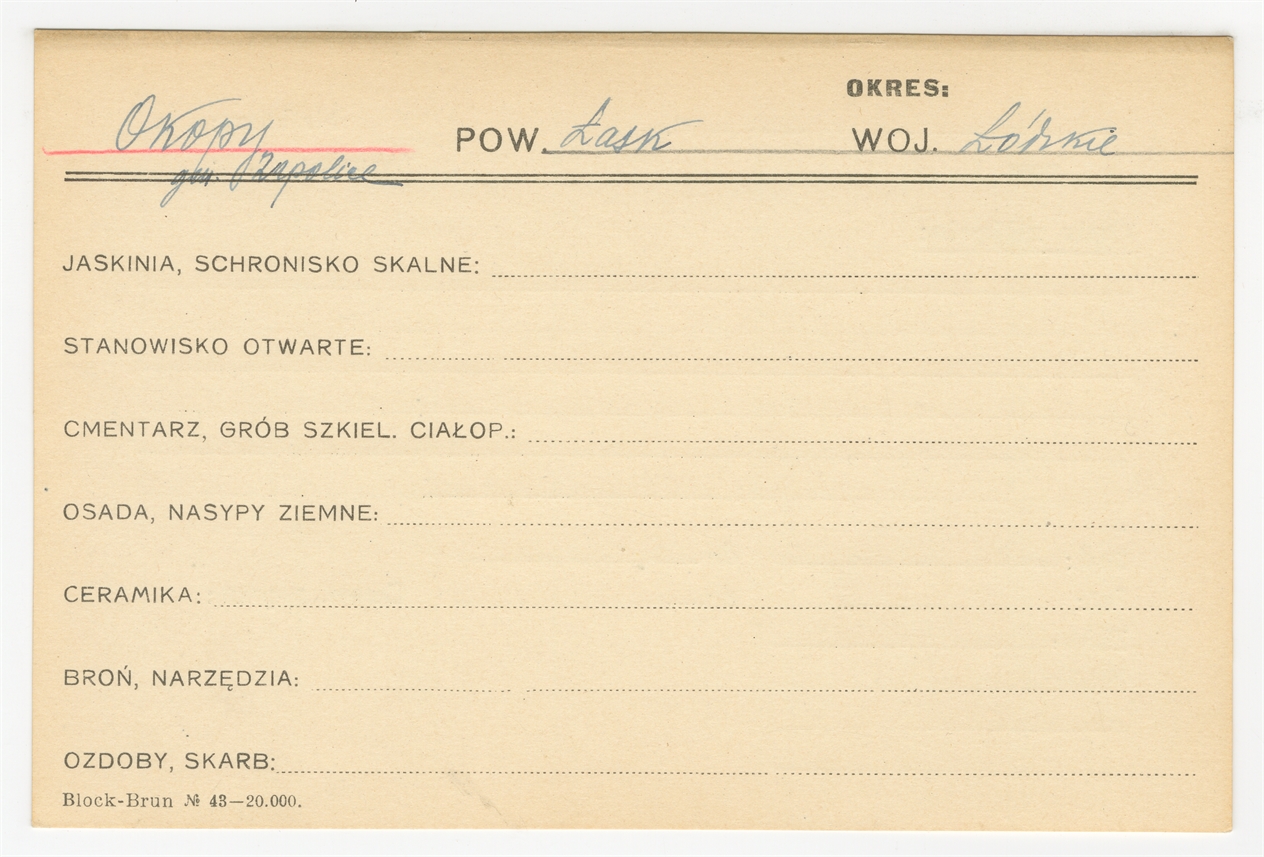 OKRES:
Okopy POW. Łask WOJ. Łódzkie
gm. Zapolice
JASKINIA, SCHRONISKO SKALNE:
STANOWISKO OTWARTE:
CMENTARZ, GRÓB SZKIEL. CIAŁOP.:
OSADA, NASYPY ZIEMNE:
CERAMIKA:
BROŃ, NARZĘDZIA:
OZDOBY, SKARB:
Block-Brun № 43—20.000.